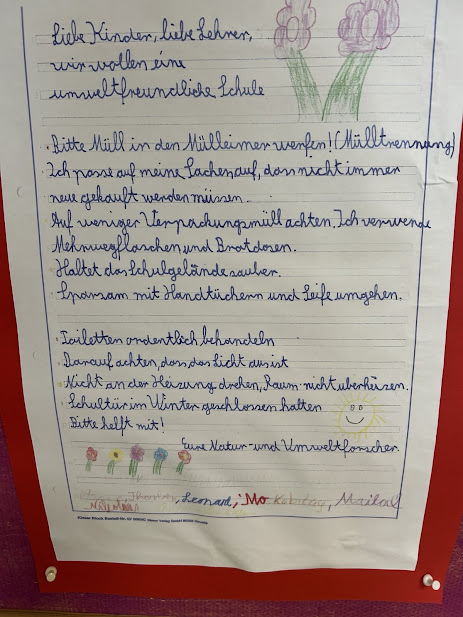 Liebe Kinder, liebe Lehrer,
wir wollen eine
umweltfreundliche Schule
Bitte Müll in den Mülleimer werfen! (Mülltrennung)
Ich passe auf meine Sachen auf, dass nicht immer
neue gekauft werden müssen.
Auf weniger Verpackungsmüll achten, Ich verwende
Mehrwegflaschen und Brotdosen.
Haltet das Schulgelände sauber.
Sparsam mit Handtüchern und Seife umgehen.
Toiletten ordentlich behandeln
Darauf achten, dass das Licht aus ist
Nicht an der Heizung drehen, Raum nicht überheizen.
Schultür im Winter geschlossen halten
Bitte helft mit!
Eure Natur- und Umweltforscher
Leonard, Mo